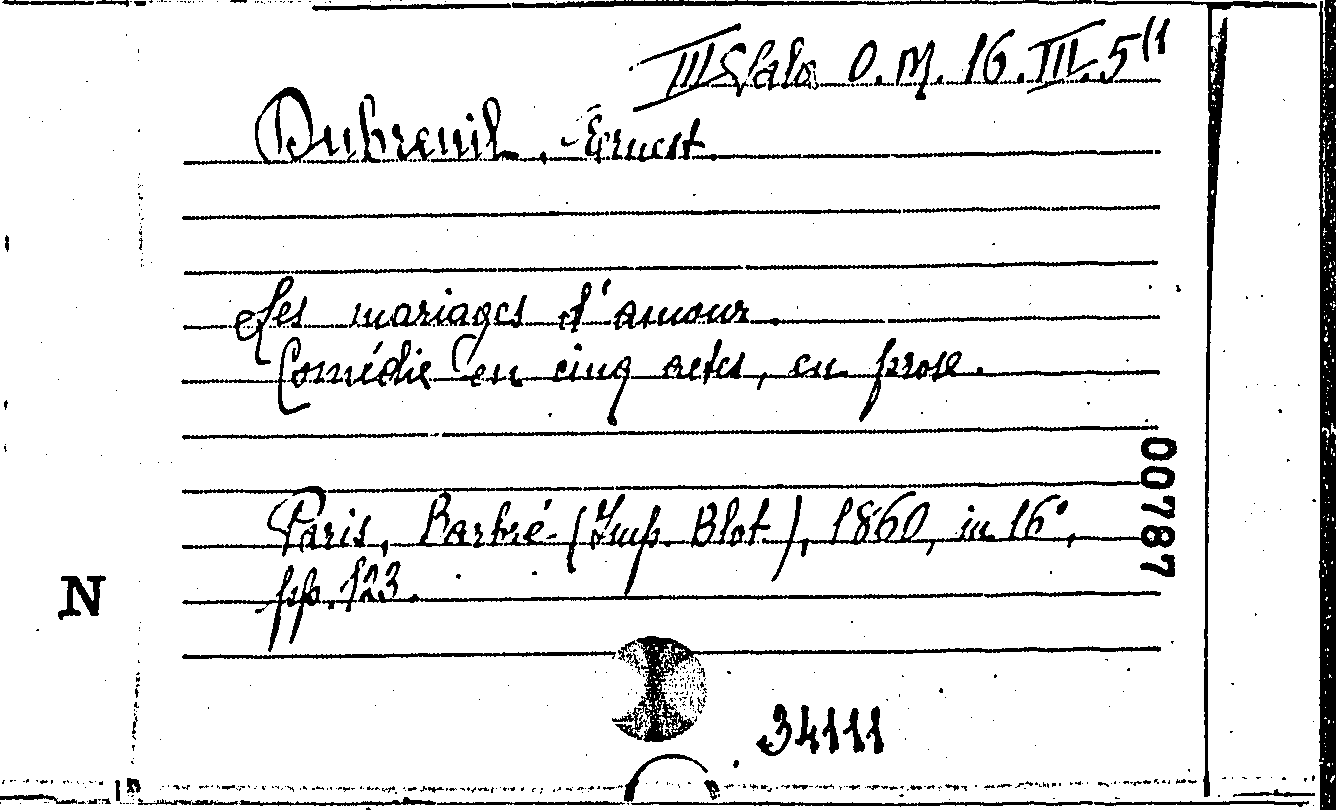 III Sala O.M. 16.III.5"
Dubreuil, Ernest
Les mariages d'amour.
Comédie en cinq actes, en prose.
Paris, Barbré (Imp. Blot), 1860, in 16°,
pp. 123.
00787
N
34111